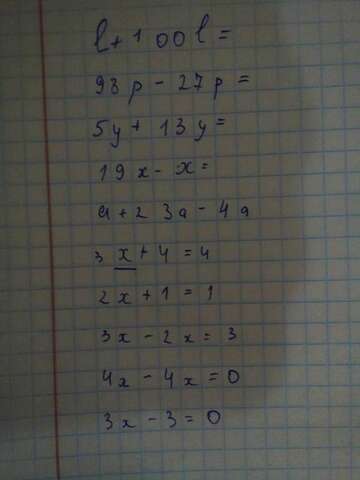 l + 100l =
98p - 27p =
5y + 13y =
19x - x =
a + 23a - 4a
3x + 4 = 4
2x + 1 = 1
3x - 2x = 3
4x - 4x = 0
3x - 3 = 0